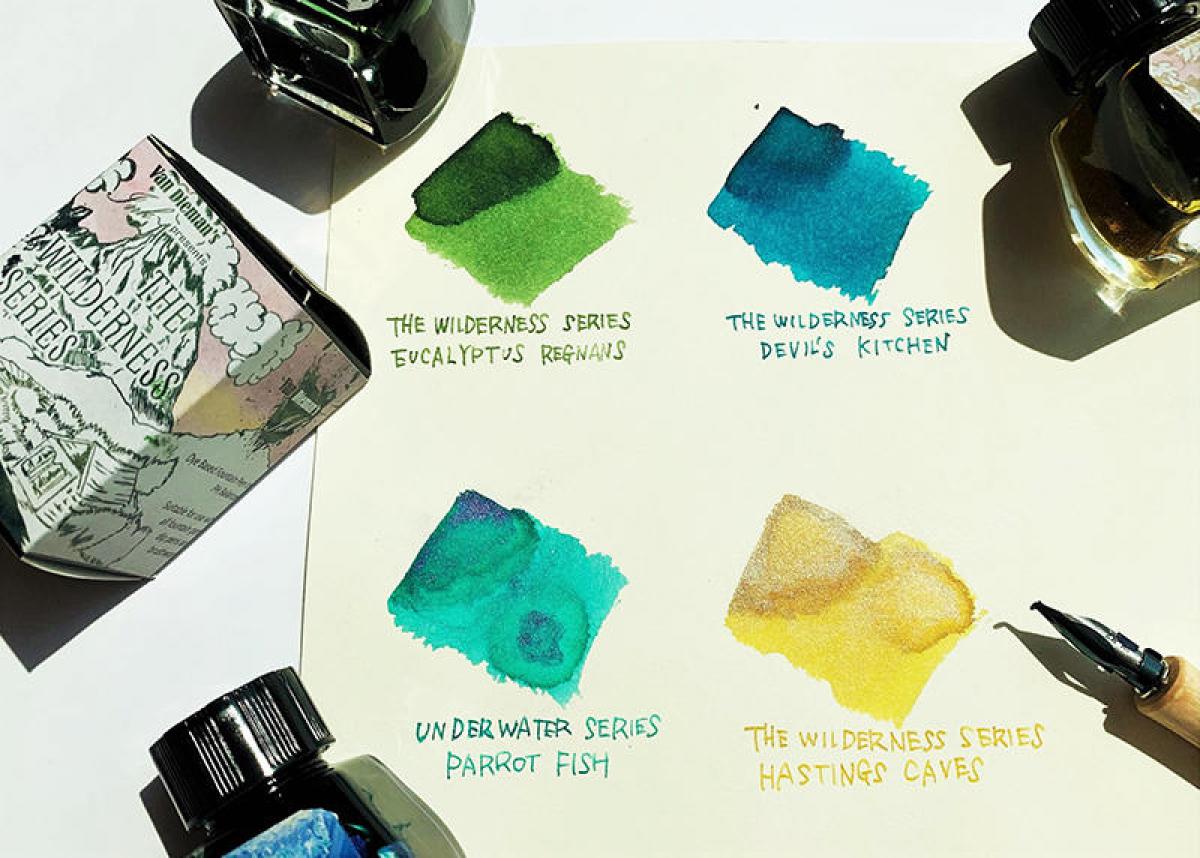 Van Dieman's
presents
THE
WILDERNESS
SERIES
THE WILDERNESS SERIES
EUCALYPTUS REGNANS
THE WILDERNESS SERIES
DEVIL'S KITCHEN
UNDERWATER SERIES
PARROT FISH
THE WILDERNESS SERIES
HASTINGS CAVES